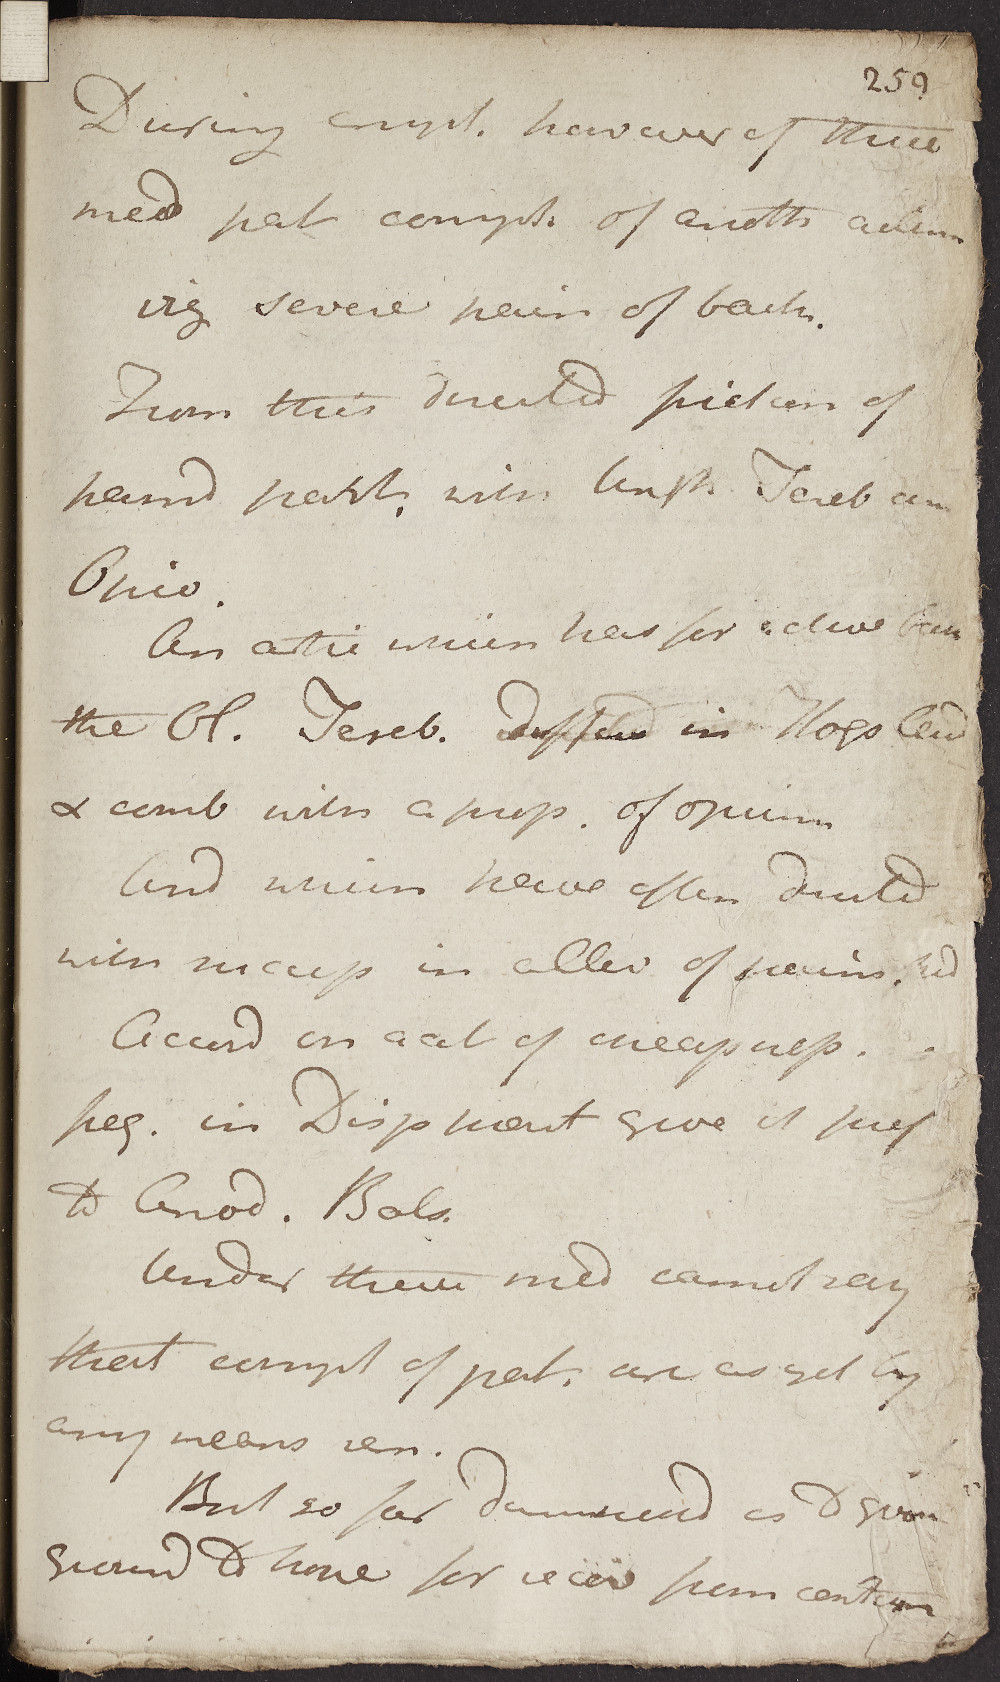 259
During empl. however of these
med pat compl. of anoth ailm
viz severe pain of back.
From this directed friction of
pained part, with Ungt. Tereb cum
Opio.
An artic which has for active base
the Ol. Tereb. in Hogs Lard
& comb with a prop. of opium
And which have often directed
with success in allev of pains.
Accord on act of cheapness.
freq. in Disp pract give it pref
to Anod. Bals.
Under these med cannot say
that compl of pat. are as yet by
any means rem.
But so far diminished as to give
ground to hope for from contin